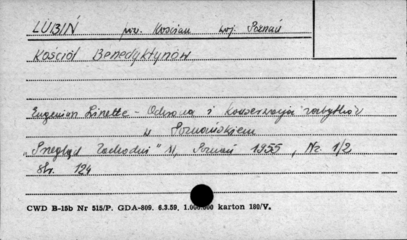 LUBIŃ pow. Kościan woj. Poznań
Kościół Benedyktynów
Eugeniusz Linette - Odnowa i konserwacja zabytków
w Poznańskiem
„Przegląd Zachodni" 11, Poznań 1955, Nr. 1/2
Str. 124
CWD B-15b Nr 515/P. GDA-809. 6.3.59. 1.000.000 karton 160/V.